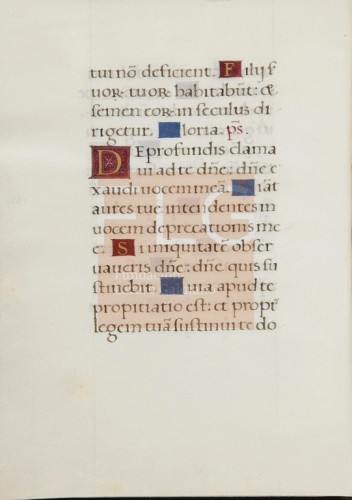 tui nō deficient. Filij s
uor tuor habitabūt: &
semen eor in seculus di
rigetur. Gloria. ps.
DE profundis clama
ui ad te dñe: dñe e
xaudi uocem meā. Fiāt
aures tue intendentes in
uocem deprecationis me
e. Si iniquitatē obser
uaueris dñe: dñe quis su
stinebit. Quia apud te
propitiatio est: et propt
legem tuā sustinui te do